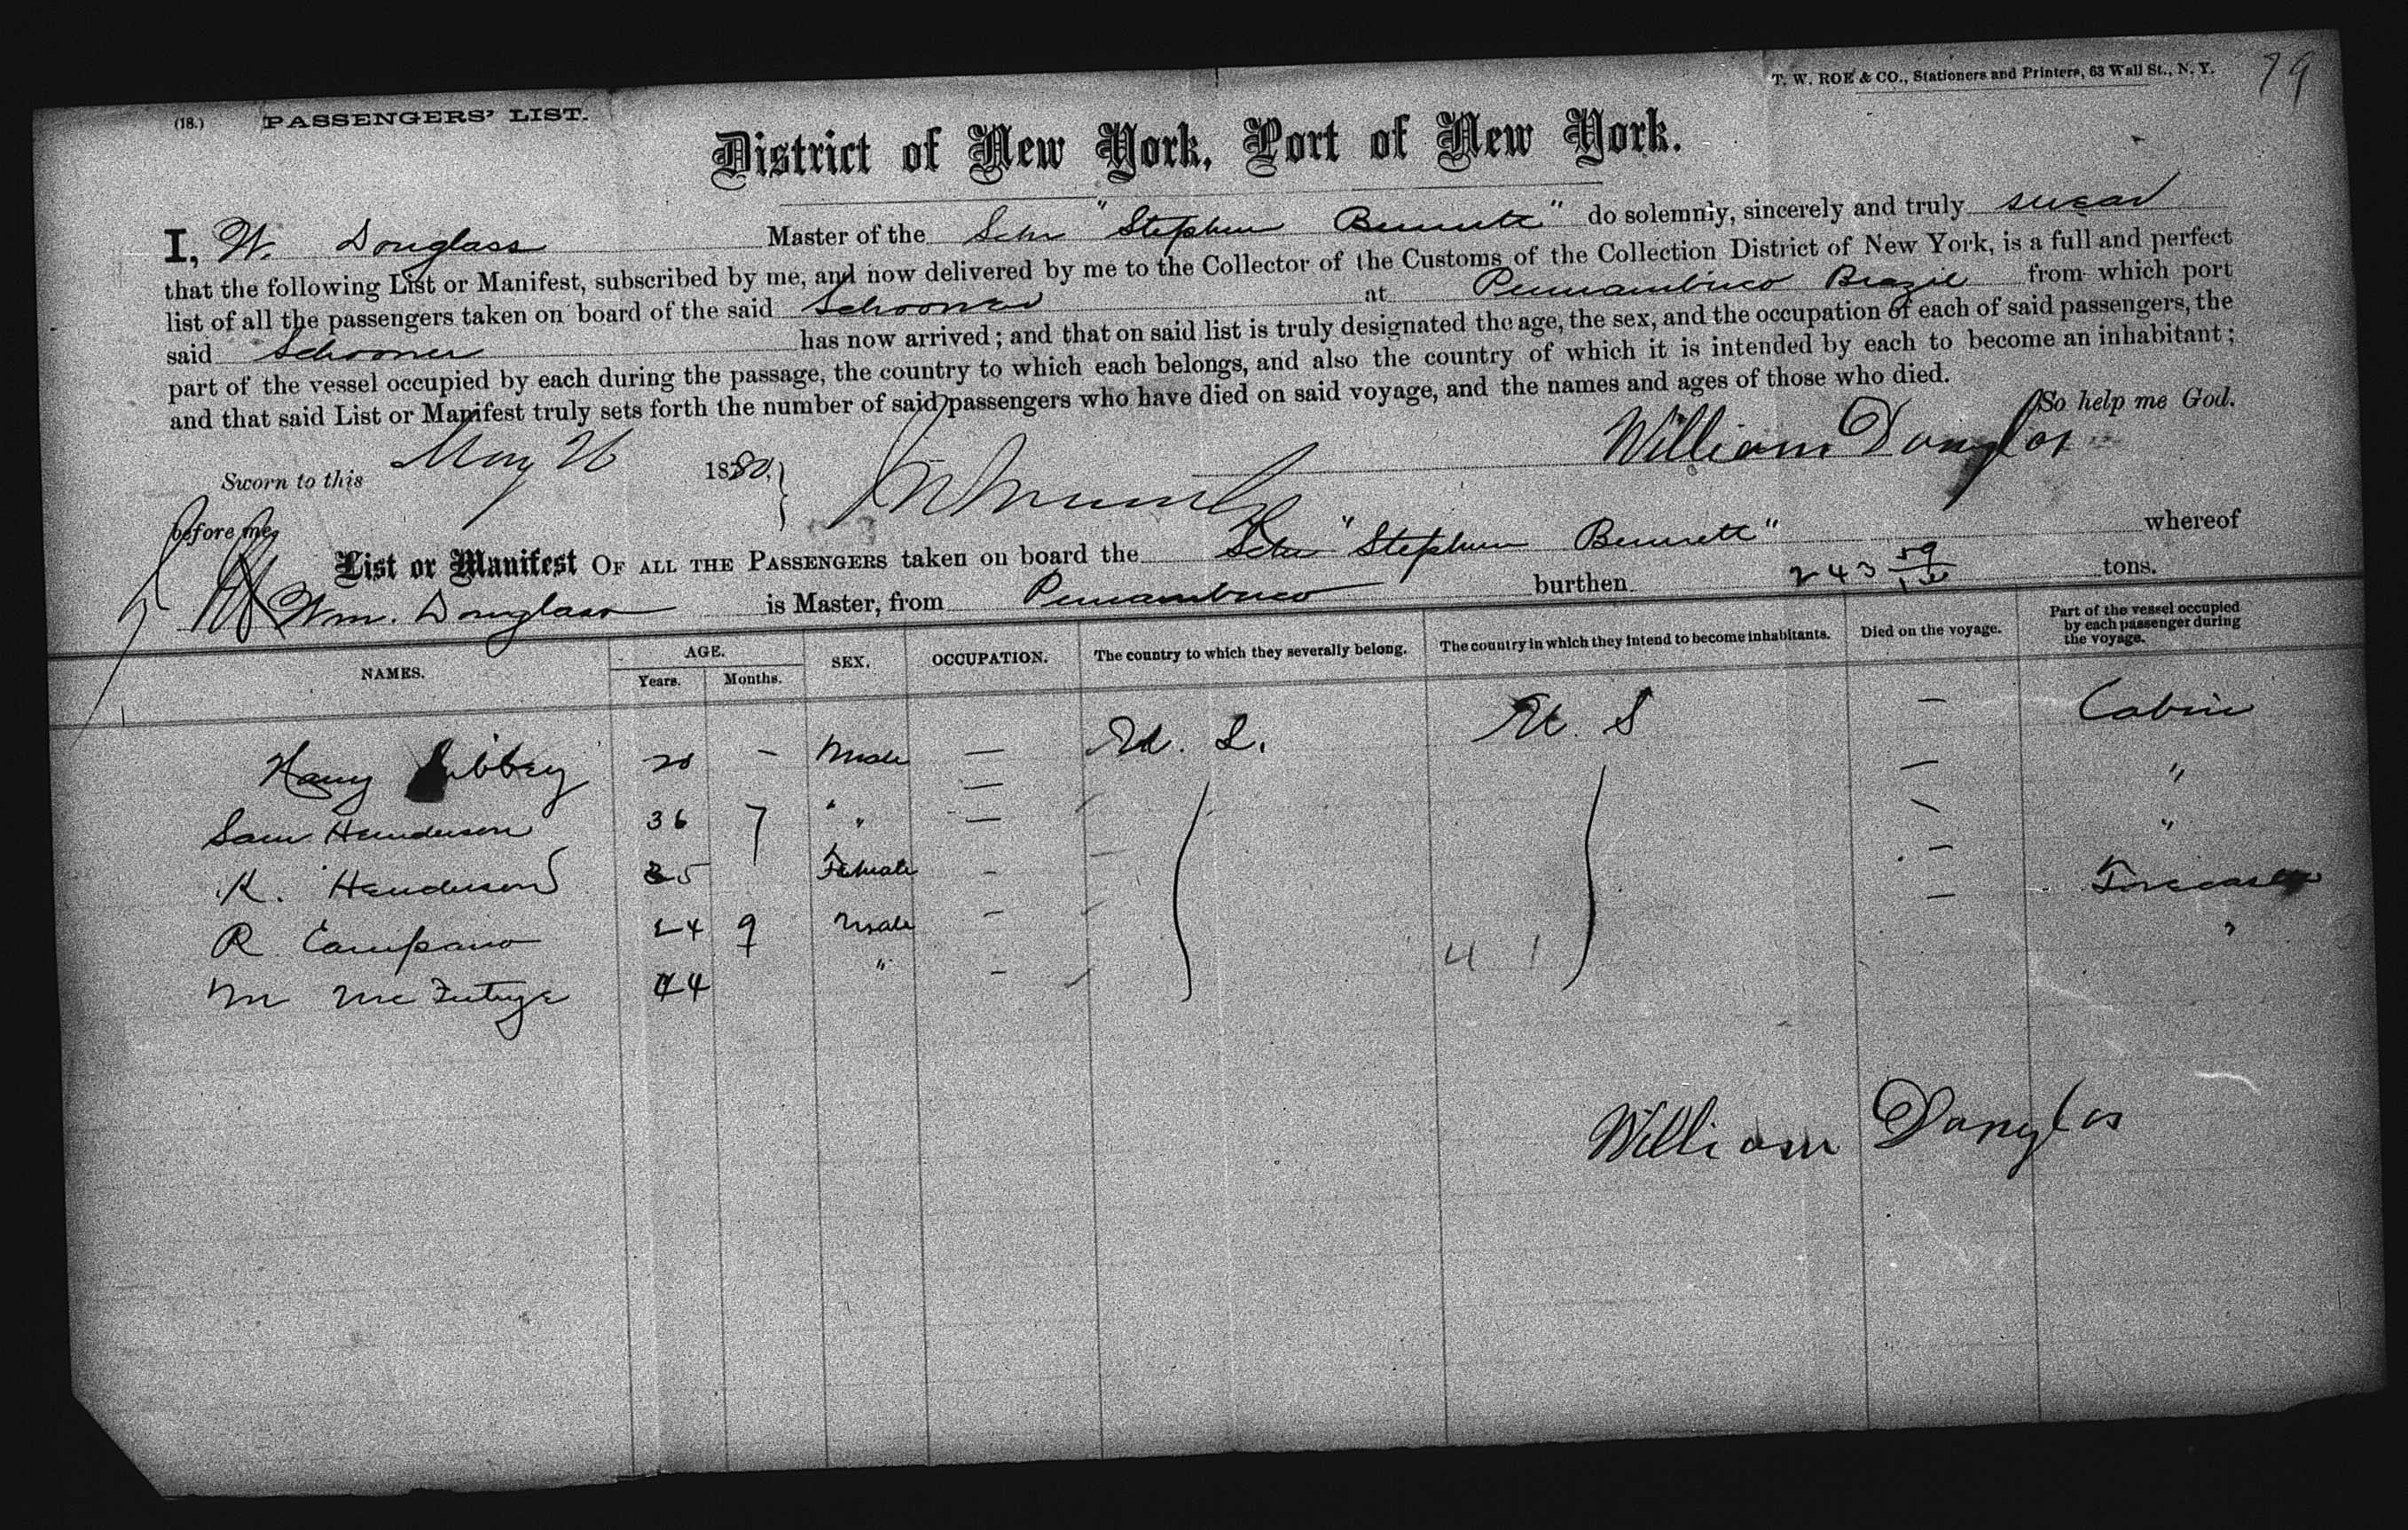 79
T. W. ROE & CO., Stationers and Printers, 63 Wall St., N. Y.
(18.) PASSENGERS' LIST.
District of New York, Port of New York.
I, W. Douglass Master of the Schr "Stephen Bennett" do solemnly, sincerely and truly swear
that the following List or Manifest, subscribed by me, and now delivered by me to the Collector of the Customs of the Collection District of New York, is a full and perfect
list of all the passengers taken on board of the said Schooner at Pernambuco Brazil from which port
said Schooner has now arrived; and that on said list is truly designated the age, the sex, and the occupation of each of said passengers, the
part of the vessel occupied by each during the passage, the country to which each belongs, and also the country of which it is intended by each to become an inhabitant;
and that said List or Manifest truly sets forth the number of said passengers who have died on said voyage, and the names and ages of those who died.
So help me God.
Sworn to this May 26 1880, William Douglas
before me,
List or Manifest OF ALL THE PASSENGERS taken on board the Schr "Stephen Bennett" whereof
Wm. Douglass is Master, from Pernambuco burthen 243 tons.
NAMES. AGE. Years. Months. SEX. OCCUPATION. The country to which they severally belong. The country in which they intend to become inhabitants. Died on the voyage. Part of the vessel occupied by each passenger during the voyage.
Harry Libbey 20 – Male — U. S. U. S – Cabin
Sam Henderson 36 7 " — — "
K. Henderson 35 Female – – "
R. Campano 24 9 Male – – Forecastle
M 44 " – – "
4 1
William Douglas